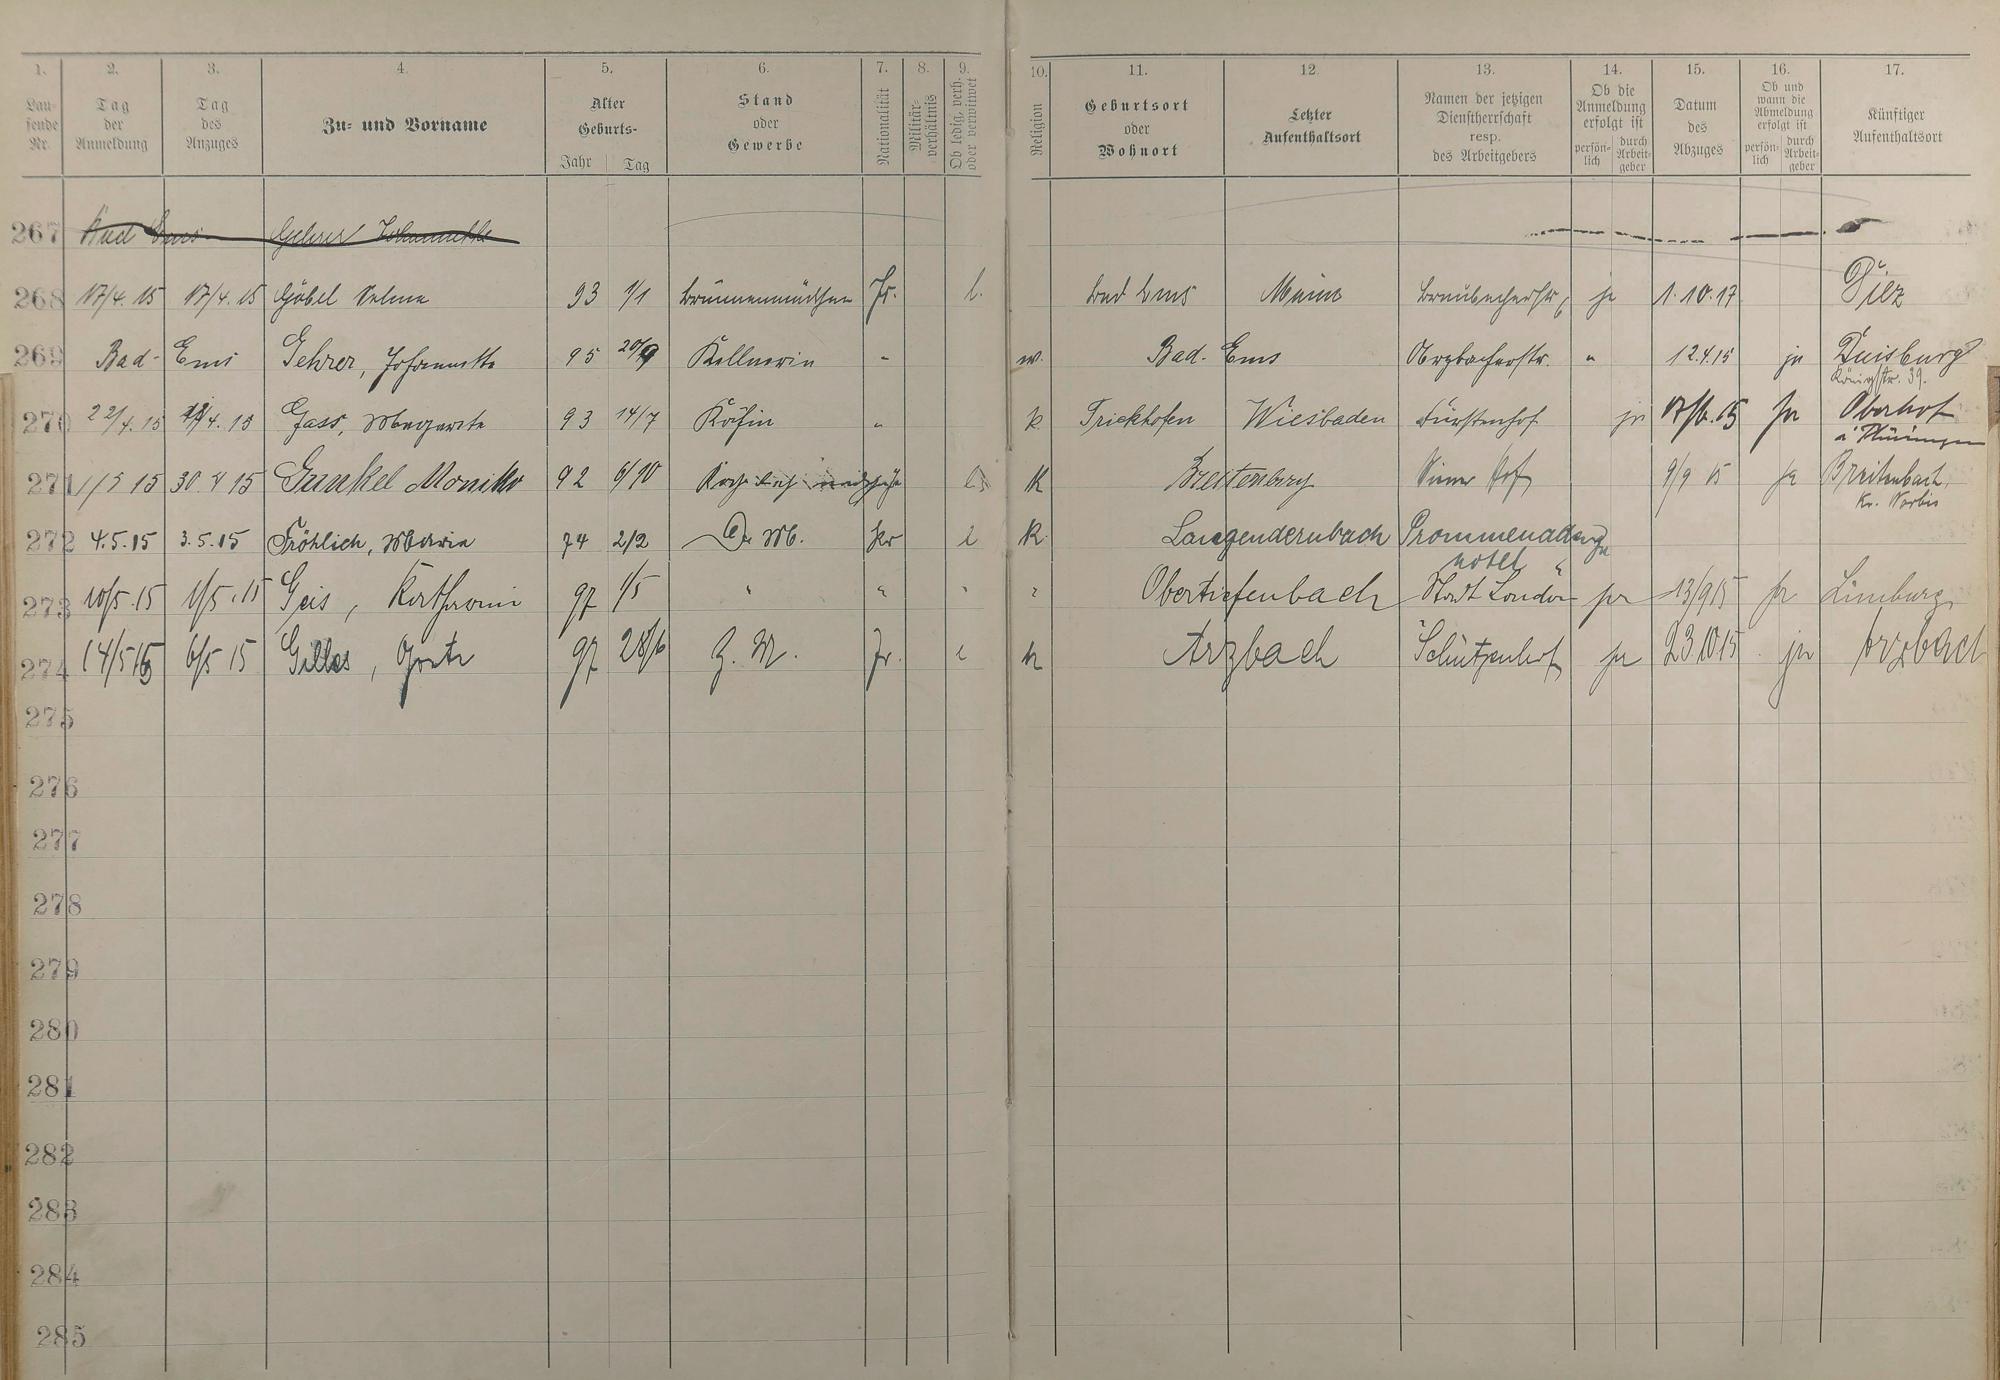 1. 2. 3. 4. 5. 6. 7. 8. 9. 10. 11. 12. 13. 14. 15. 16. 17.
Lau-
fende
Nr.
Tag
der
Anmeldung
Tag
des
Anzuges
Zu- und Vorname
Alter
Geburts-
Jahr Tag
Stand
oder
Gewerbe
Nationalität
Militär-
verhältnis
Ob ledig, verh.
oder verwitwet
Religion
Geburtsort
oder
Wohnort
Letzter
Aufenthaltsort
Namen der jetzigen
Dienstherrschaft
resp.
des Arbeitgebers
Ob die
Anmeldung
erfolgt ist
persön-
lich
durch
Arbeit-
geber
Datum
des
Abzuges
Ob und
wann die
Abmeldung
erfolgt ist
persön-
lich
durch
Arbeit-
geber
Künftiger
Aufenthaltsort
267 Bad Ems Gehrer Johannette
268 17/4. 15 17/4. 15 Göbel Selma 93 1/1 Brunnenmädchen Pr. l. Bad Ems Mainz ja 1.10.17 Diez
269 Bad-Ems Gehrer, Johannette 95 20/9 Kellnerin " w. Bad-Ems " 12.4.15 ja Duisburg
Königstr. 39.
270 22/4.15 4.15 Gass, Margarete 93 14/7 Köchin " k. Frickhofen Wiesbaden Fürstenhof ja 17/6.15 ja Oberhof
271 1/5 15 30.4 15 Gunkel Monika 92 6/10 K Hof 9/9 15 ja Breitenbach,
Kr. Worbis
272 4.5.15 3.5.15 Fröhlich, Maria 74 2/2 M. Pr l K. Langendernbach Prommenaden ja
hotel
273 10/5.15 1/5.15 Geis, Katharina 97 1/5 " " " " Obertiefenbach Stadt London ja 13/9 15 ja Limburg
274 14/5 15 6/5 15 Gilles, Greta 97 28/6 Z. M. Pr. l k Arzbach Schützenhof ja 23.10 15 ja Arzbach
275
276
277
278
279
280
281
282
283
284
285